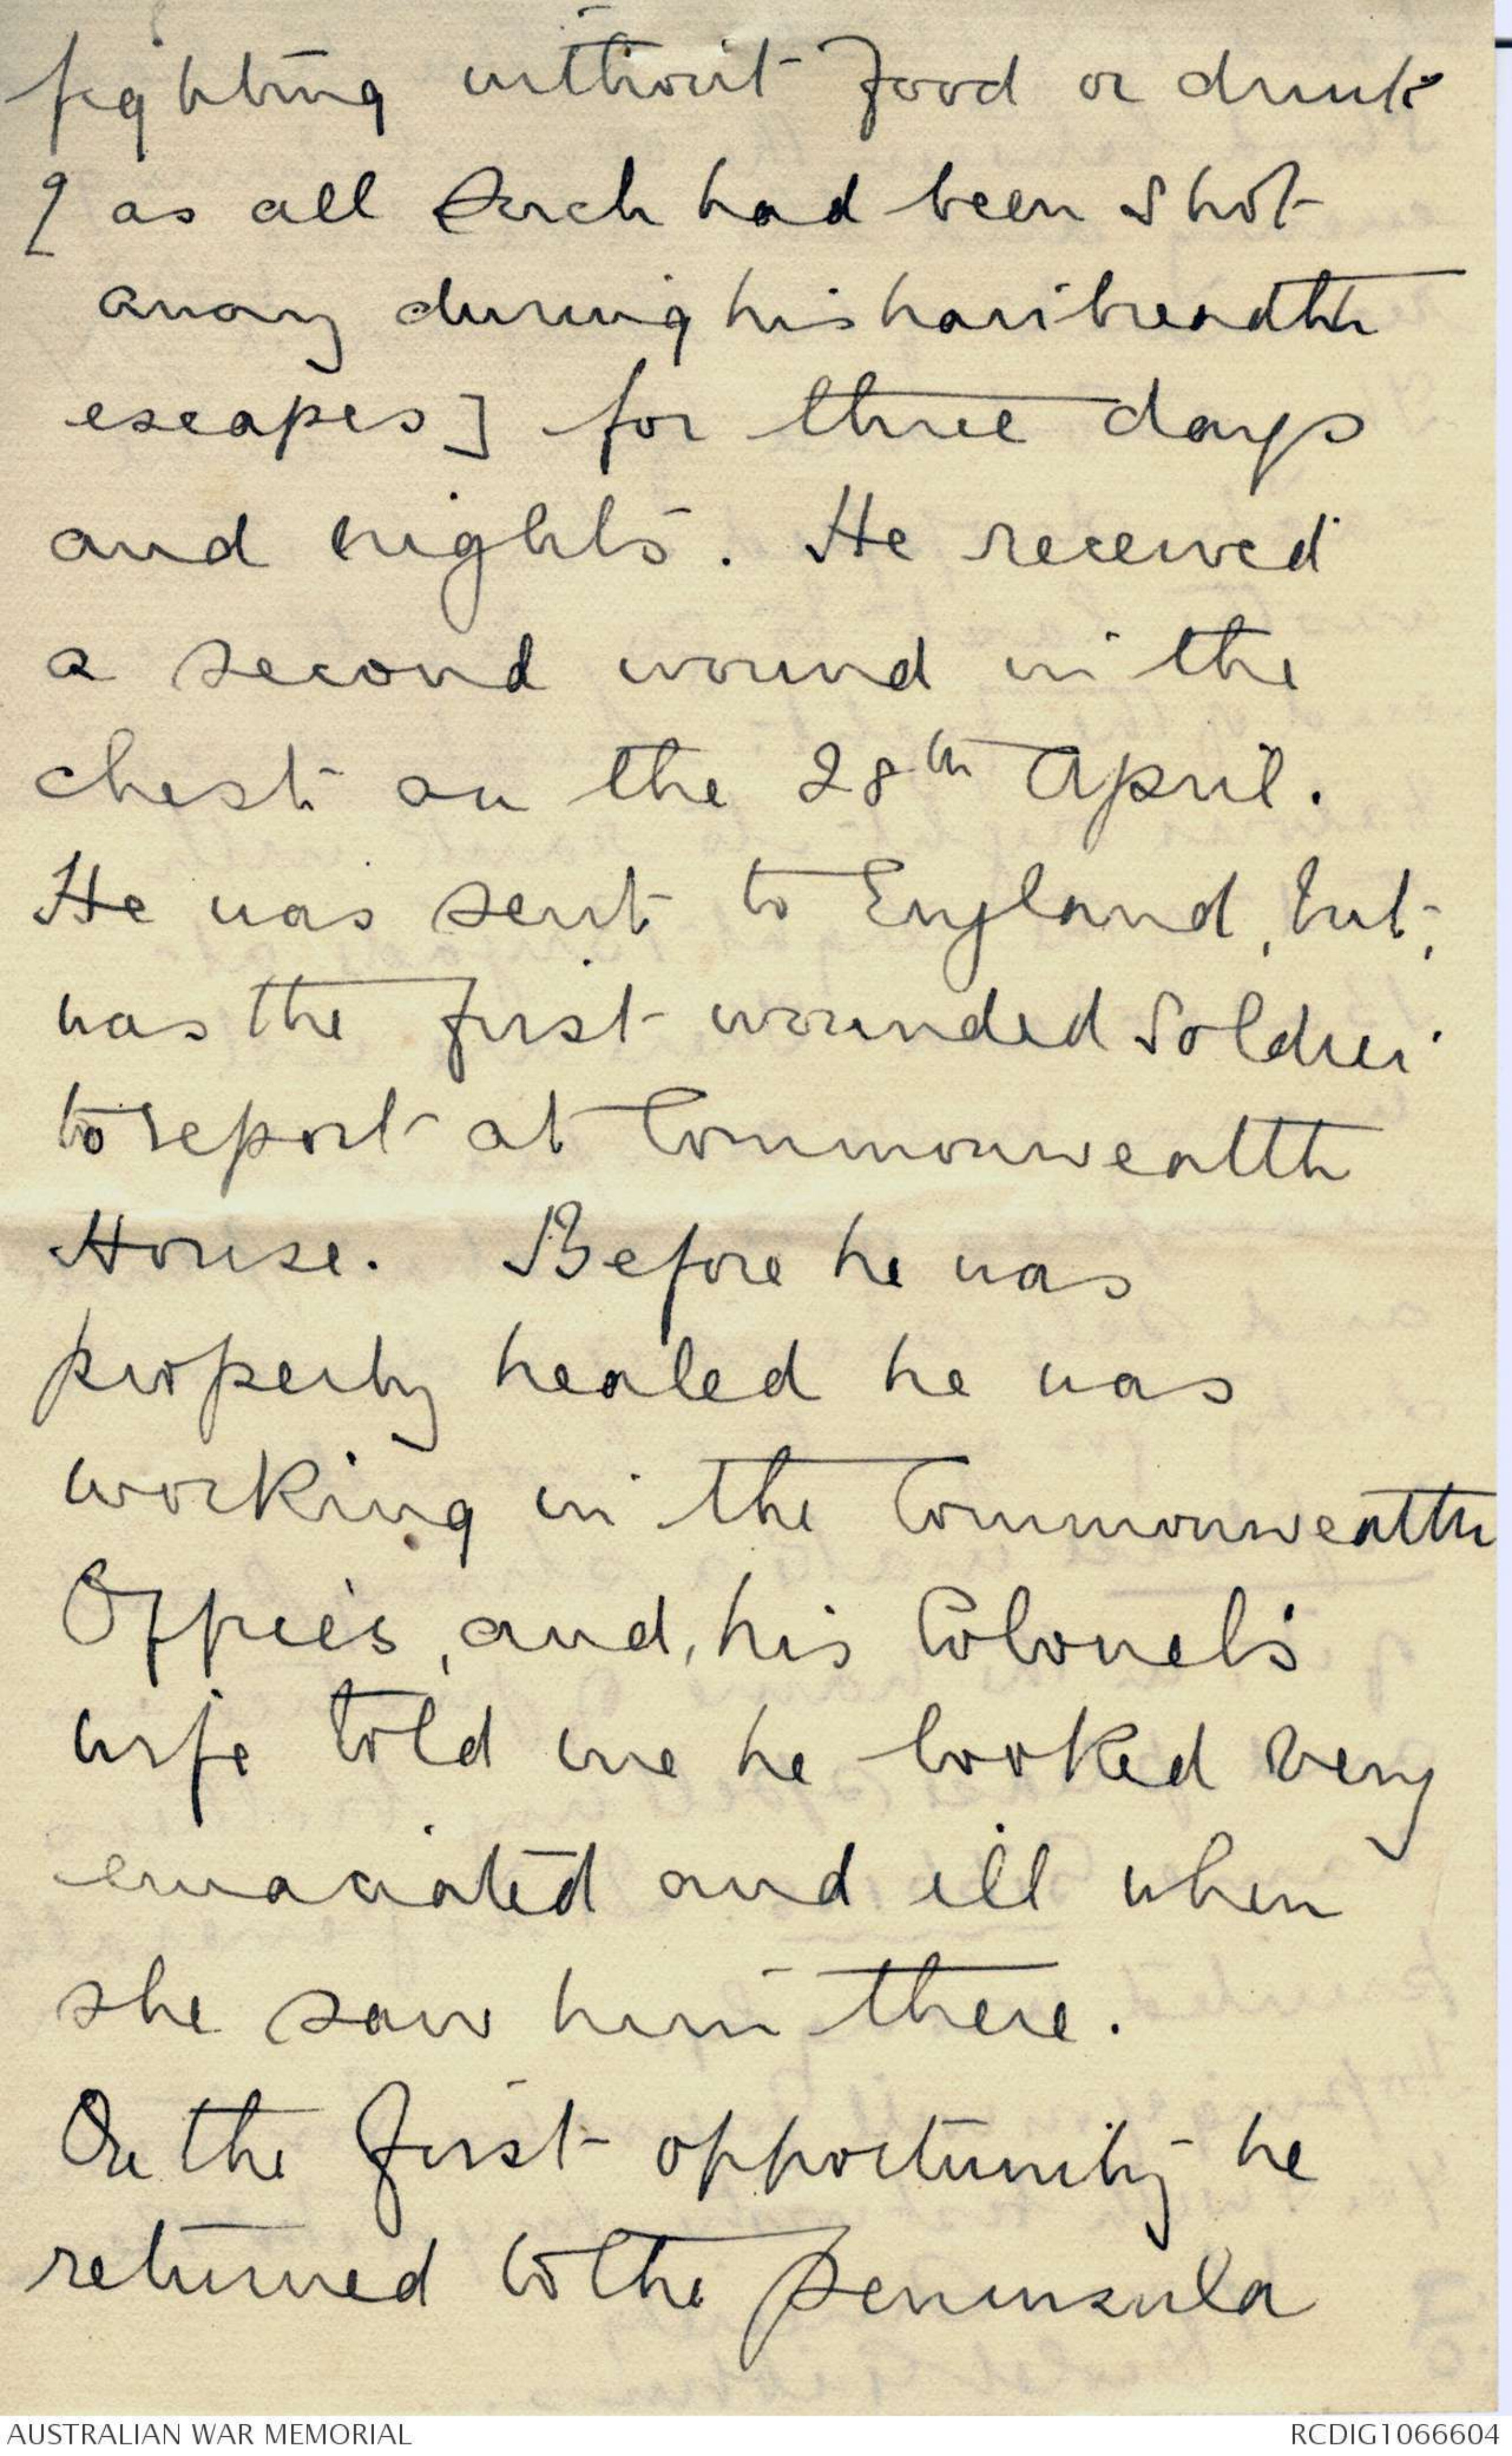 fighting without food or drink
[as all such had been shot
away during his hairibreadth
escapes] for three days
and nights. He received
a second wound in the
chest on the 28th April.
He was sent to England, but,
was the first wounded soldier
to report at Commonwealth
House. Before he was
properly healed he was
working in the Commonwealth
Offices, and, his Colonel's
wife told me he looked very
emaciated and ill when
she saw him there.
On the first opportunity he
returned to the Peninsula
AUSTRALIAN WAR MEMORIAL
RCDIG1066604